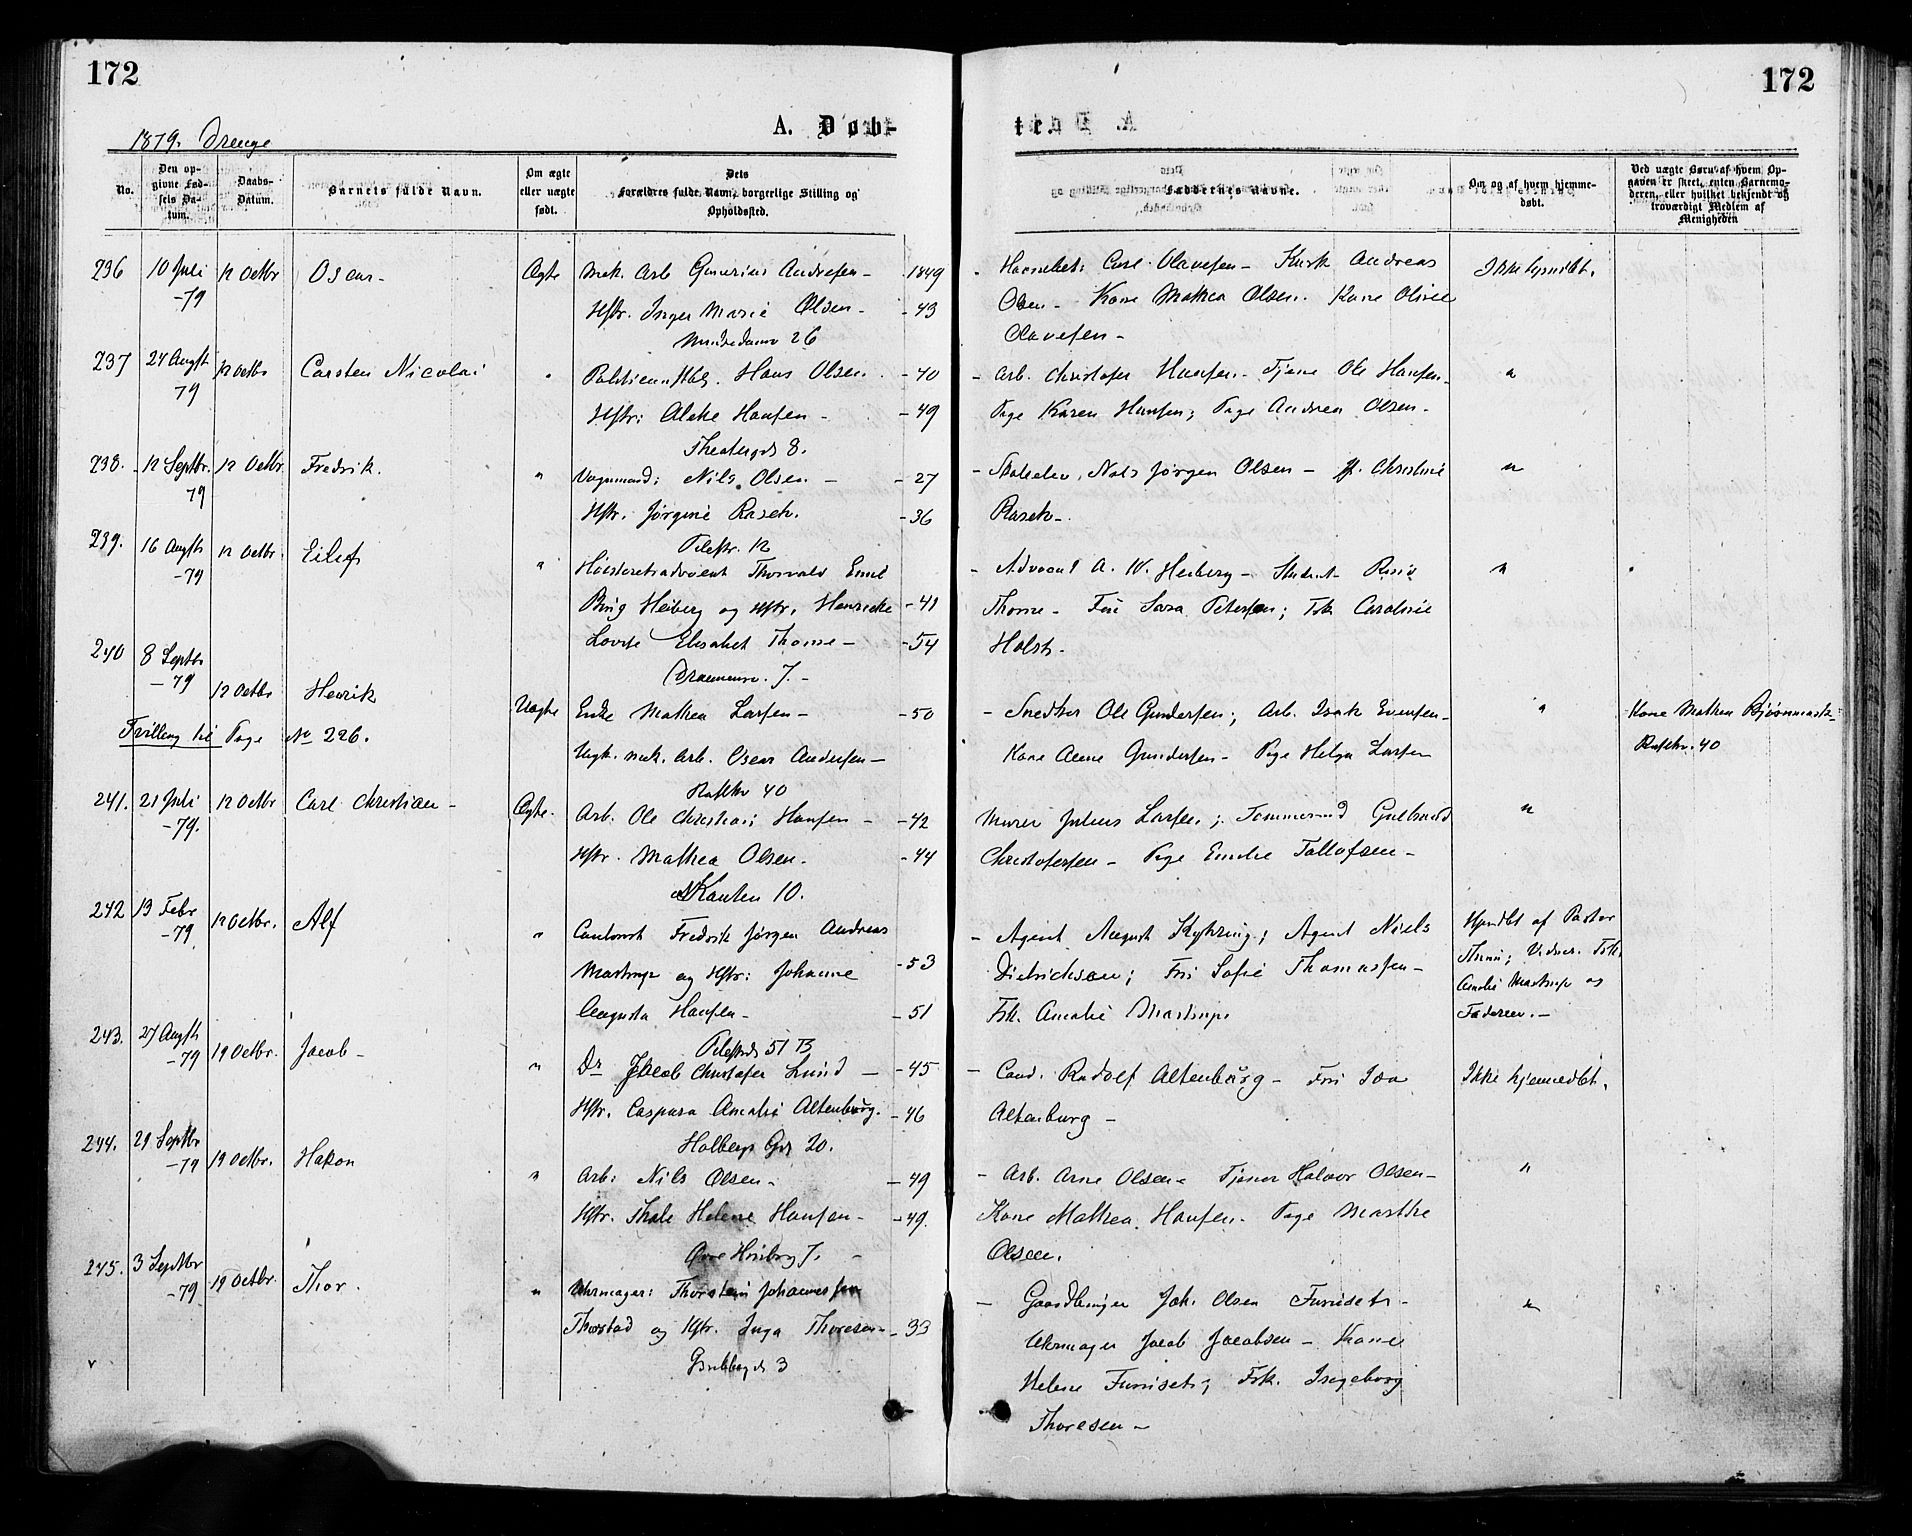 172
172
A. Døb-
te.
1879. Drenge
No.
Den op-
givne Fød-
sels Da-
tum.
Daabs-
Datum.
Barnets fulde Navn.
Om ægte
eller uægte
født.
Dets
Forældres fulde Navn, borgerlige Stilling og
Opholdssted.
Faddernes Navne.
Om og af hvem hjemme-
døbt.
Ved uægte Børn af hvem Op-
gaven er skeet, enten Barnemo-
deren, eller hvilket bekjendt og
troværdigt Medlem af
Menigheden
236 10 Juli 12 Octbr Oscar - Ægte mek. Arb Andresen - 1849 Carl Olavesen - Kusk Andreas
-79 Hstr. Inger Marie Olsen - -43 Olsen - Kone Mathea Olsen. Kone
26 Olavesen -
237 24 Augst 12 Octbr Carsten Nicolai " Hans Olsen - -40 - Arb. Christofer Hansen - Tjener Ole Hansen - "
79 Hstr: Hansen - -49 Pige Karen Hansen; Pige Andrea Olsen -
Theatergd 8.
238. 12 Septbr. 12 Octbr. Fredrik. " Vognmand: Nils Olsen - -27 - Nils Jørgen Olsen - Christine "
79 Hstr. Jørgine Rasch. -36 Rasch -
Pilestr. 12
239. 16 Augst 12 Octbr. Eilif " Høiesteretsadvocat Thorvald Emil - Advocat A. W. Heiberg - Student "
-79 Bing Heiberg og Hstr. Henricke -41 Thome - Fru Sara Petersen; Frk Caroline
Lovise Elisabet Thome - -54 Holst -
Drammensv. 7. -
240 8 Septbr
-79 12 Octbr Henrik Uægte Enke Mathea Larsen - -50 - Snedker Ole Gundersen; Arb. Isak Evensen - " Kone Mathea
Tvilling til Pige No 226. Ungk. mek. Arb. Oscar Andersen - Kone Anne Gundersen - Pige Helga Larsen 40
40
241. 21 Juli 12 Octbr Carl Christian - Ægte. Arb. Ole Christian Hansen - -42 Murer Julius Larsen; Tømmermd Gulbrand "
-79. Hstr. Mathea Olsen - -44 Christofersen - Pige Emilie Tollofsen -
Kanten 10.
242 13 Febr 12 Octbr. Alf " Contorist Fredrik Jørgen Andreas - Agent August Kyhring; Agent Niels Hjmdbt af Pastor
-79 Mastrup og Hstr: Johanne -53 Dietrichson; Fru Sofie Thomassen - Vidner. Frk.
Augusta Hansen - -51 Frk. Amalie Mastrup Amalie Mastrup og
Faderen. -
243. 27 Augst 19 Octbr. Jacob - 51 B
-79 " Dr Jacob Christofer Lund - -45 - Cand. Rudolf Altenburg - Fru Ida Ikke hjemmedbt.
Hstr. Caspara Amalie Altenburg. -46 Altenburg -
244. 29 Septbr Holbergs Gd 20.
-79 19 Octbr. Hakon " Arb: Nils Olsen - -49 - Arb. Arne Olsen - Tjener Halvor Olsen - "
Hstr. Thale Helene Hansen - -49. Kone Mathea Hansen - Pige Marthe
7. Olsen.
245. 3 Septbr 19 Octbr. Thor. " Uhrmager: Thorstein Johannessen - Gaardbruger Joh. Olsen Furuset - "
-79 Thorstad og Hstr. Inga Thoresen - -33 Uhrmager Jacob Jacobsen - Kone
Grubbegd 3 Helene Furuset; Frk. Ingeborg
Thoresen -